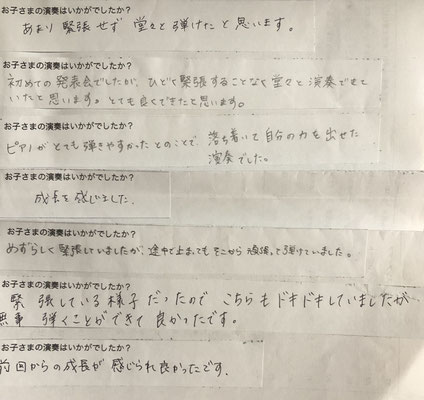 お子さまの演奏はいかがでしたか？
あまり緊張せず 堂々と弾けたと思います。
お子さまの演奏はいかがでしたか？
初めての発表会でしたが、ひどく緊張することなく堂々と演奏できて
いたと思います。とても良くできたと思います。
お子さまの演奏はいかがでしたか？
ピアノがとても弾きやすかったとのことで、落ち着いて自分の力を出せた
演奏でした。
お子さまの演奏はいかがでしたか？
成長を感じました。
お子さまの演奏はいかがでしたか？
めずらしく緊張していましたが、途中で止まってもそこから頑張って弾けていました。
お子さまの演奏はいかがでしたか？
緊張している様子だったので こちらもドキドキしていましたが…
無事 弾くことができて 良かったです。
お子さまの演奏はいかがでしたか？
前回からの成長が 感じられ良かったです。